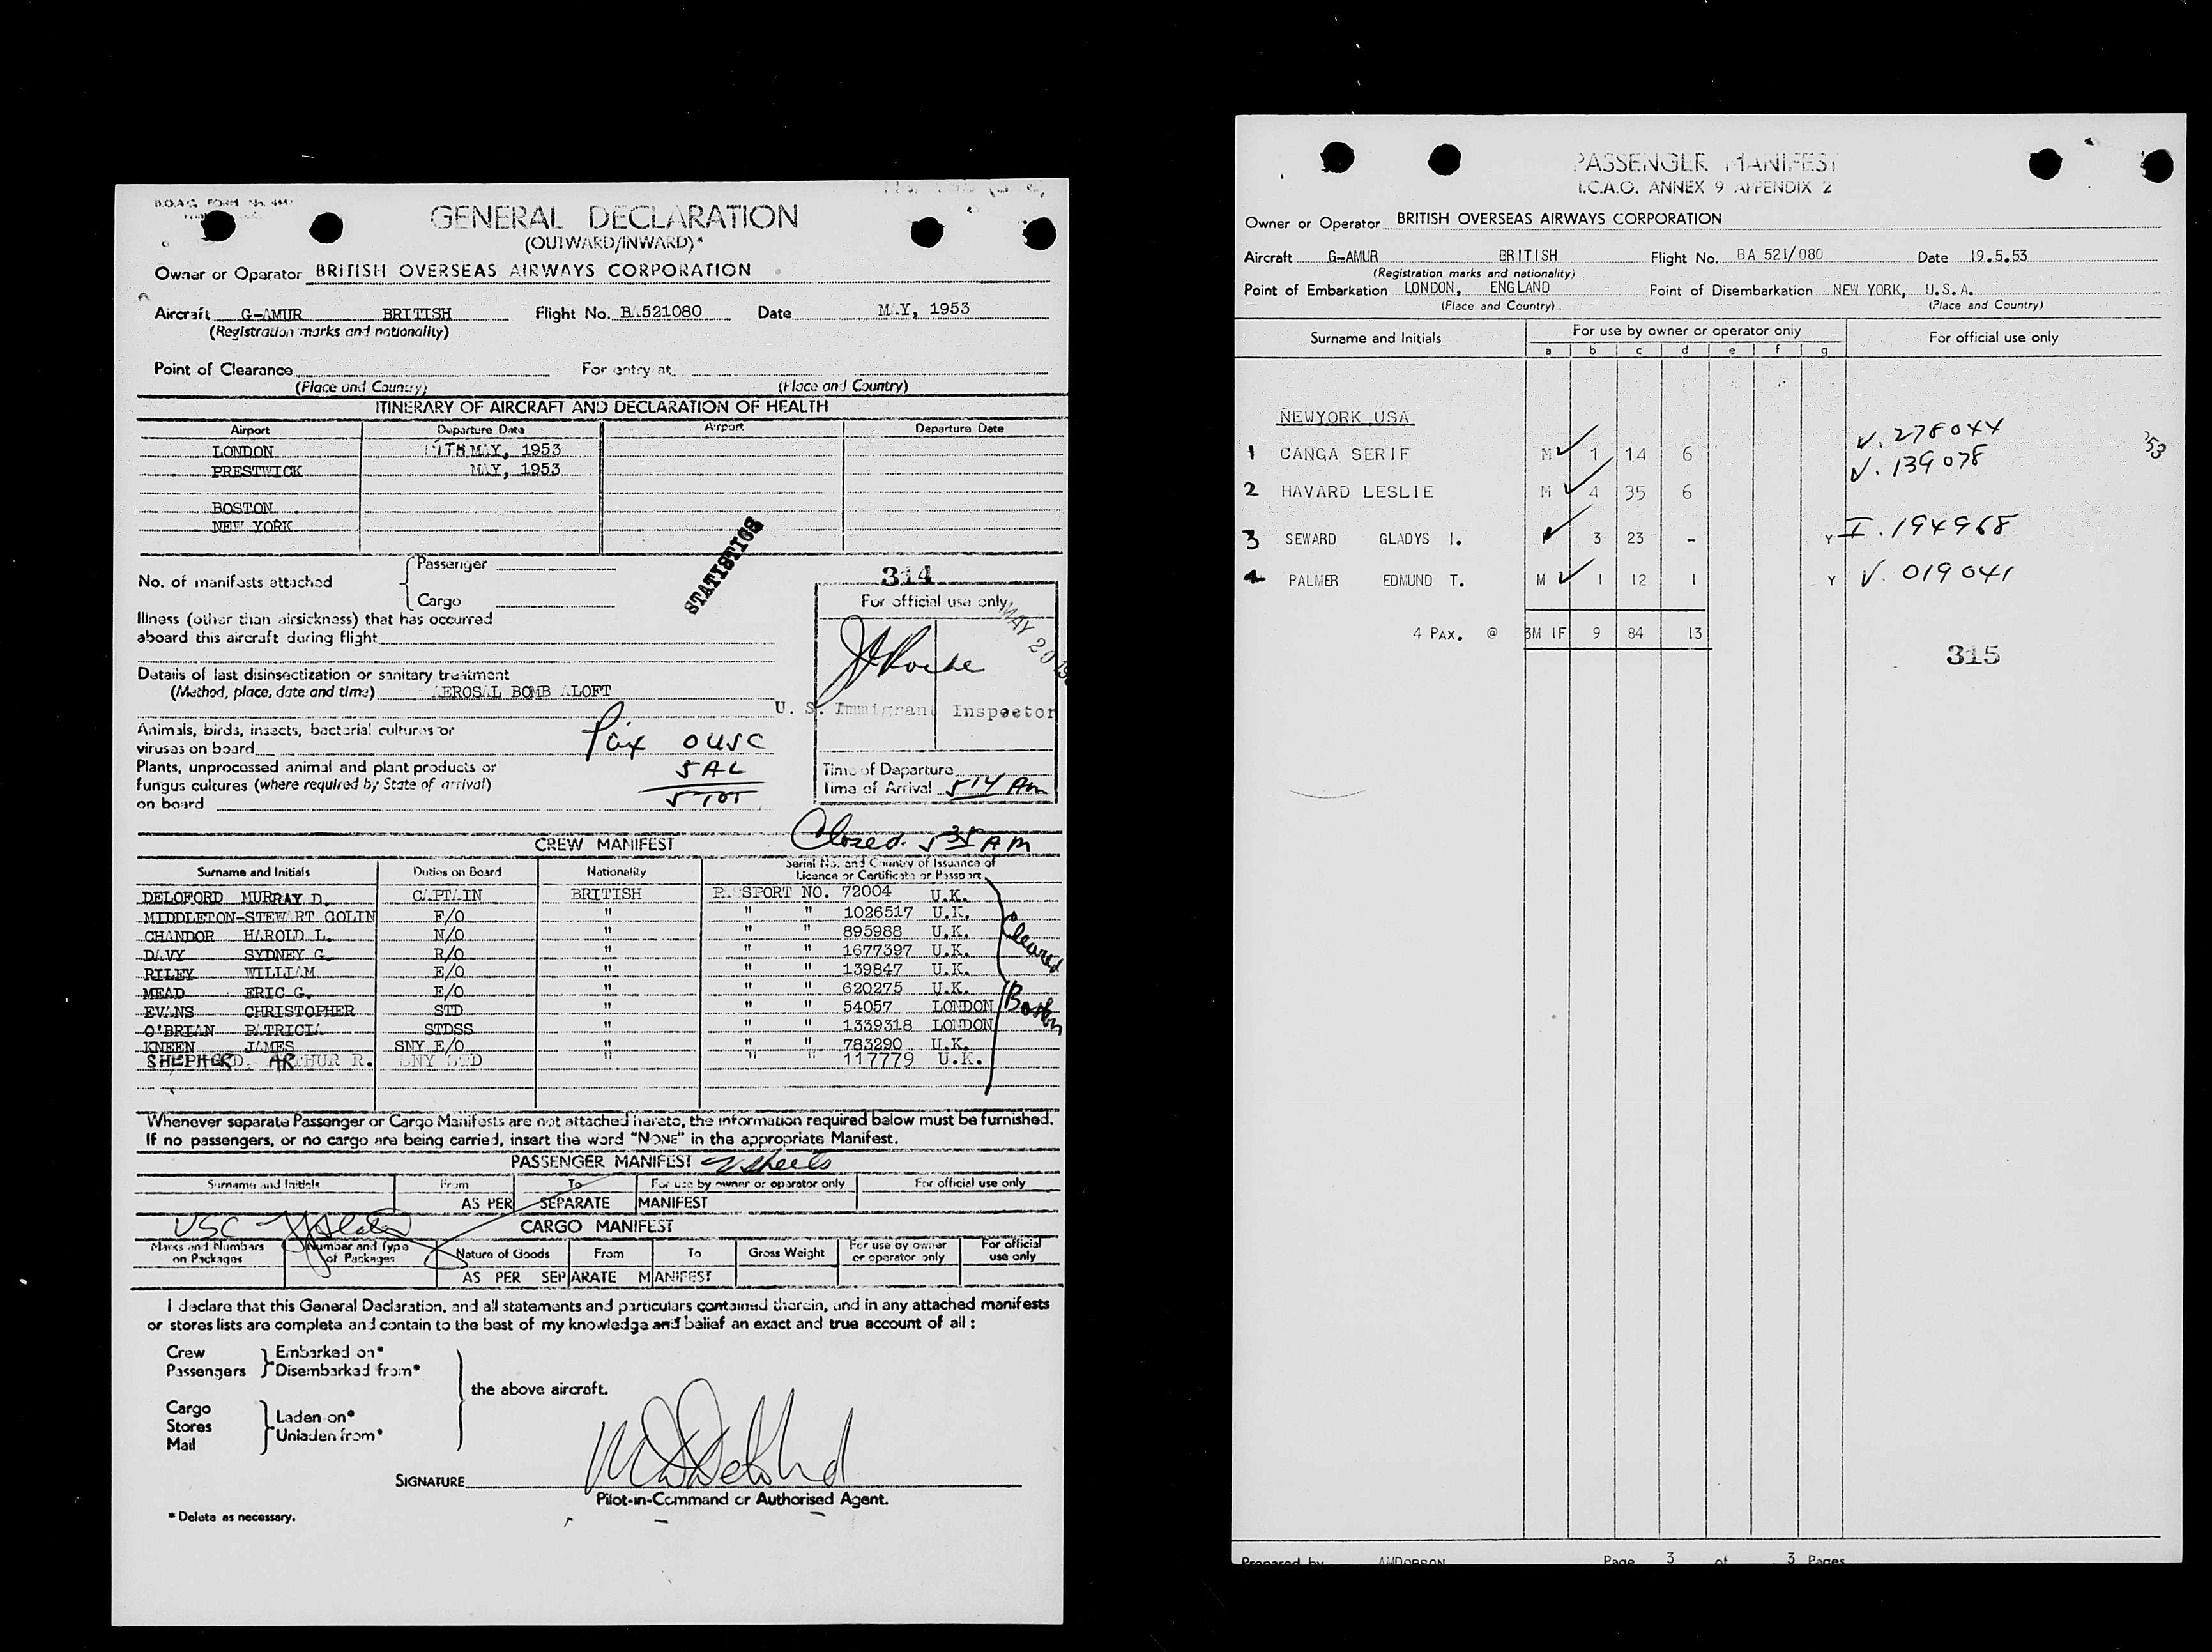 B.O.A.C. FORM No.
GENERAL DECLARATION
(OUTWARD/INWARD)*
Owner or Operator BRITISH OVERSEAS AIRWAYS CORPORATION
Aircraft G-AMUR BRITISH Flight No. BA521080 Date MAY, 1953
(Registration marks and nationality)
Point of Clearance For entry at
(Place and Country) (Place and Country)
ITINERARY OF AIRCRAFT AND DECLARATION OF HEALTH
Airport Departure Date Airport Departure Date
LONDON MAY, 1953
PRESTWICK MAY, 1953
BOSTON
NEW YORK
STATISTICS
No. of manifests attached Passenger
Cargo
314
For official use only
MAY 20
Illness (other than airsickness) that has occurred
aboard this aircraft during flight
Details of last disinsectization or sanitary treatment
(Method, place, date and time) AEROSAL BOMB ALOFT
U. S. Immigrant Inspector
Animals, birds, insects, bacterial cultures or
viruses on board
Pax 0 USC
Plants, unprocessed animal and plant products or
fungus cultures (where required by State of arrival)
on board
5 AL
5 TOT
Time of Departure
Time of Arrival 5 14 Am
Closed. 5 35 AM
CREW MANIFEST
Surname and Initials Duties on Board Nationality Serial No. and Country of Issuance of
Licence or Certificate or Passport
DELOFORD MURRAY D. CAPTAIN BRITISH PASSPORT NO. 72004 U.K.
MIDDLETON-STEWART COLIN F/O " " " 1026517 U.K.
CHANDOR HAROLD L. N/O " " " 895988 U.K.
DAVY SYDNEY G. R/O " " " 1677397 U.K.
RILEY WILLIAM E/O " " " 139847 U.K.
MEAD ERIC G. E/O " " " 620275 U.K.
EVANS CHRISTOPHER STD " " " 54057 LONDON
O'BRIAN PATRICIA STDSS " " " 1339318 LONDON
KNEEN JAMES SNY E/O " " " 783290 U.K.
SHEPHERD. ARTHUR R. SNY STD " " " 117779 U.K.
Cleared
Boston
Whenever separate Passenger or Cargo Manifests are not attached hereto, the information required below must be furnished.
If no passengers, or no cargo are being carried, insert the word "NONE" in the appropriate Manifest.
PASSENGER MANIFEST 2 sheets
Surname and Initials From To For use by owner or operator only For official use only
AS PER SEPARATE MANIFEST
USC
CARGO MANIFEST
Marks and Numbers on Packages Number and Type of Packages Nature of Goods From To Gross Weight For use by owner or operator only For official use only
AS PER SEPARATE MANIFEST
I declare that this General Declaration, and all statements and particulars contained therein, and in any attached manifests
or stores lists are complete and contain to the best of my knowledge and belief an exact and true account of all :
Crew Embarked on*
Passengers Disembarked from*
the above aircraft.
Cargo
Stores Laden on*
Mail Unladen from*
SIGNATURE
Pilot-in-Command or Authorised Agent.
* Delete as necessary.
PASSENGER MANIFEST
I.C.A.O. ANNEX 9 APPENDIX 2
Owner or Operator BRITISH OVERSEAS AIRWAYS CORPORATION
Aircraft G-AMUR BRITISH Flight No. BA 521/080 Date 19.5.53
(Registration marks and nationality)
Point of Embarkation LONDON, ENGLAND Point of Disembarkation NEW YORK, U.S.A.
(Place and Country) (Place and Country)
Surname and Initials For use by owner or operator only For official use only
a b c d e f g
NEWYORK USA
1 CANGA SERIF M ✓ 1 14 6 V. 278044
V. 139078
2 HAVARD LESLIE M ✓ 4 35 6
3 SEWARD GLADYS I. ✓ 3 23 - Y I. 194968
4 PALMER EDMUND T. M ✓ 1 12 1 Y V. 019041
4 PAX. @ 3M 1F 9 84 13
315
Prepared by AMDOBSON Page 3 of 3 Pages